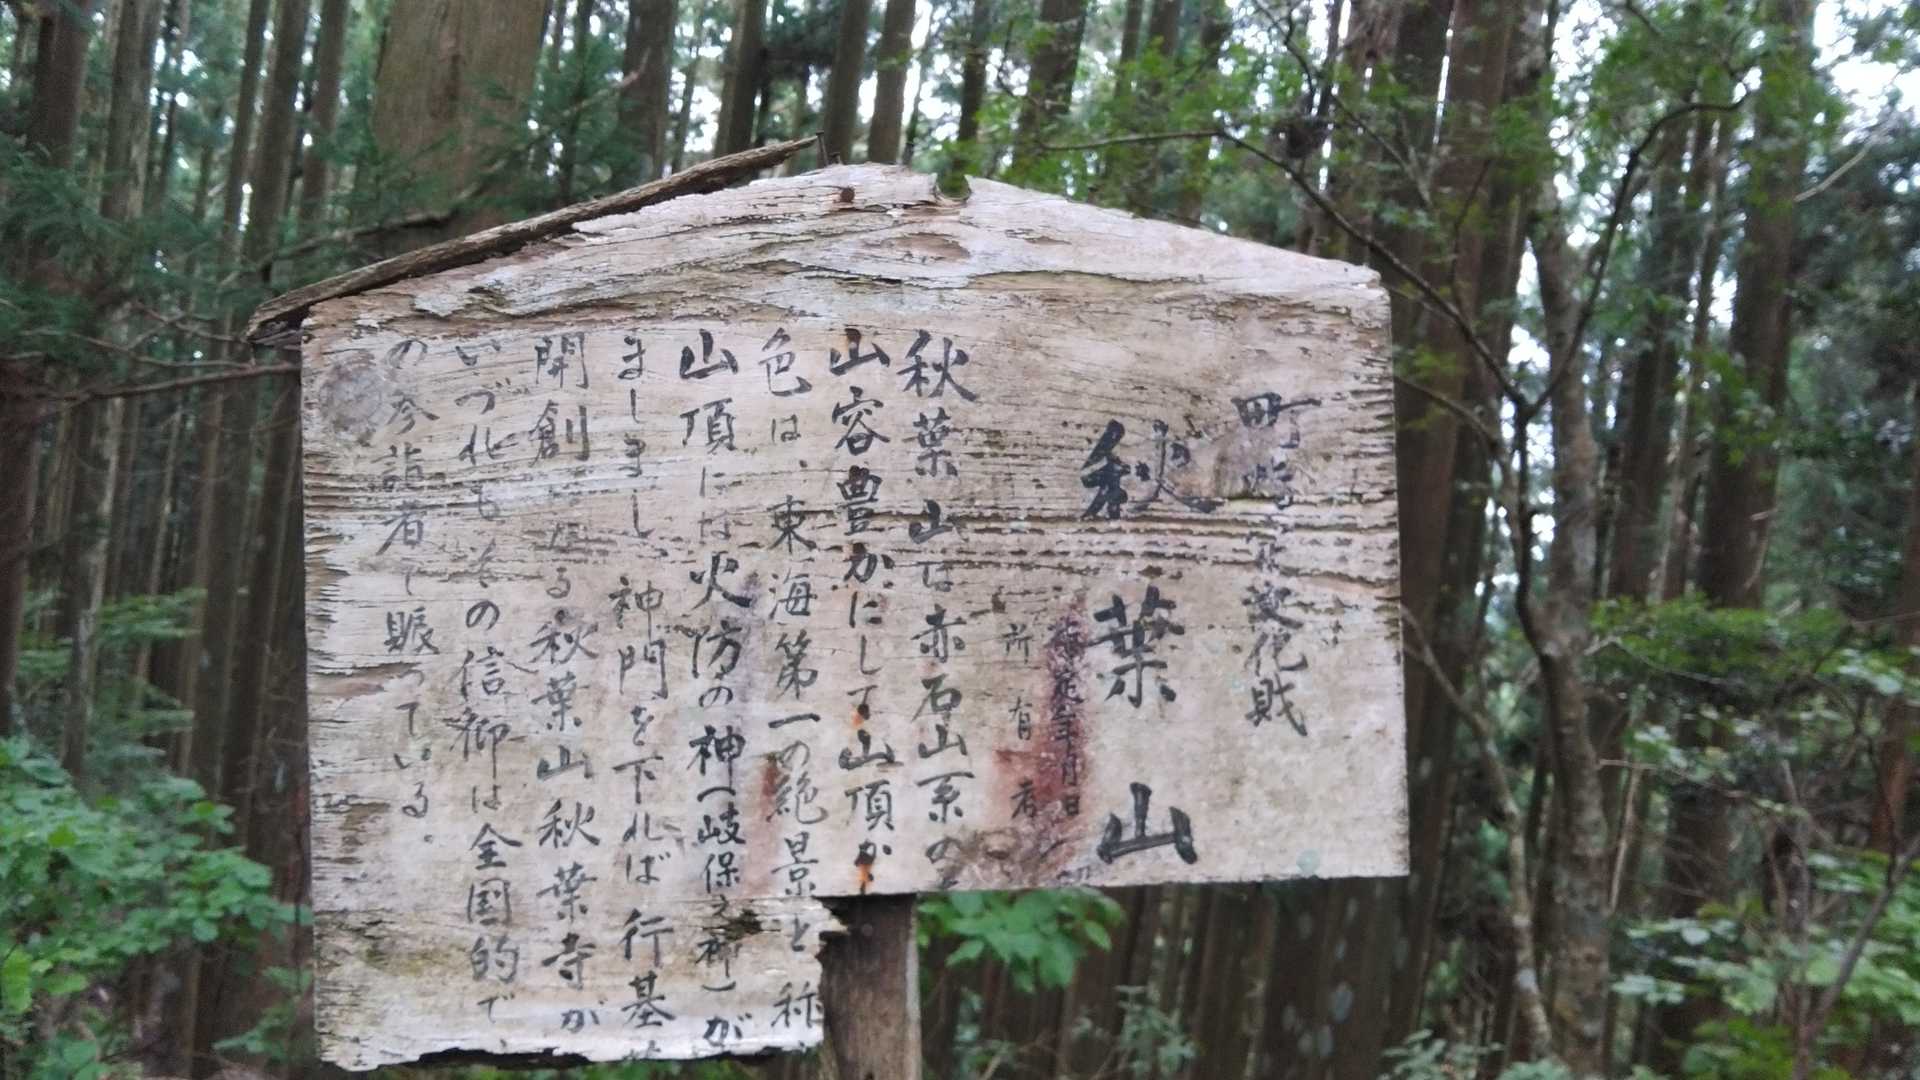 町指定文化財
秋葉山
指定年月日
所有者
秋葉山は赤石山系の
山容豊かにして山頂か
色は、東海第一の絶景と称
山頂には火防の神(岐保之神)が
ましまし、神門を下れば行基
開創になる秋葉山秋葉寺が
いづれもその信仰は全国的で、
の参詣者で賑っている。